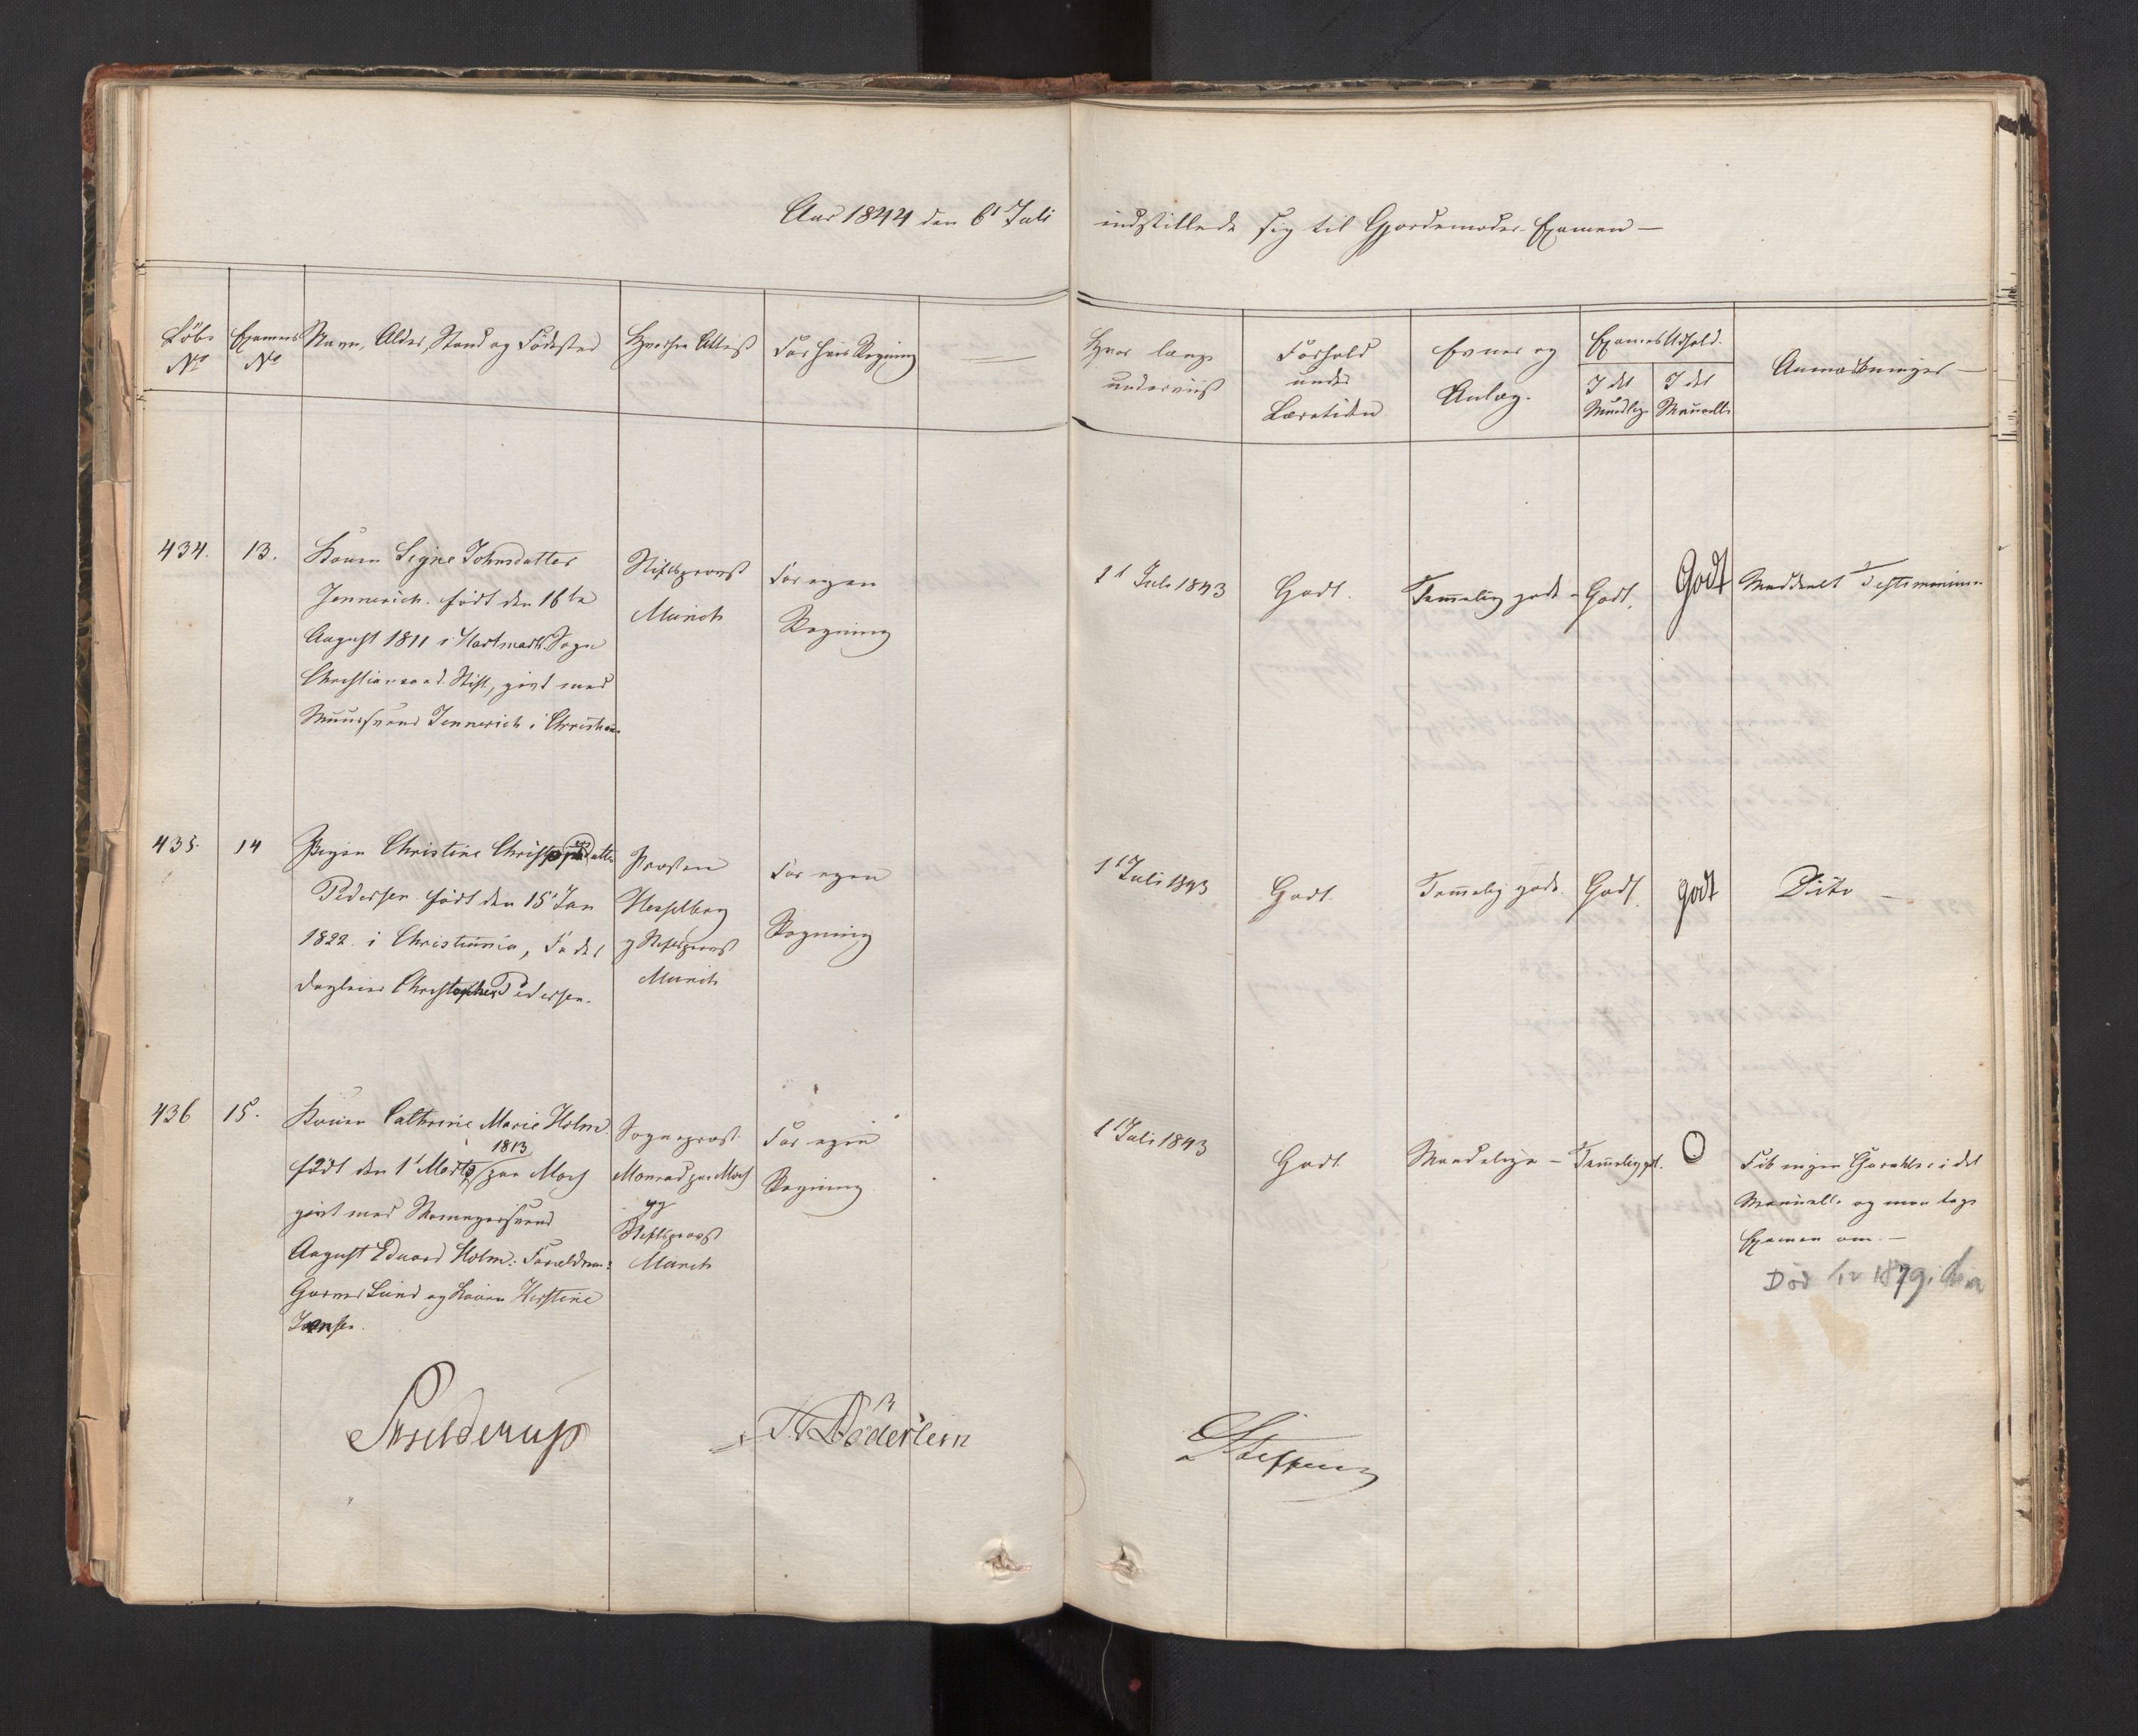 Aar 1844 den 6t Juli indstillede sig til Gjordemoder-Examen —
Löbe No
Examens No
Navn, Alder, Stand og Födested
Hvis Attest
For hvis Regning
Hvor længe underviist
Forhold under Læretiden
Evner og Anlæg.
Examens Udfald.
I det Mundtlige
I det Manuelle
Anmærkninger —
434.
13.
Konen Signe Johnsdatter
Jennerich. født den 16de
August 1811 i Hartmark Sogn
Christiansand Stift, givt med
Muursvend Jennerich i Christian.
Stiftsprovst
Munch
For egen
Regning
1t Juli 1843
Godt.
Temmelig gode
Godt.
Godt
Meddeelt Testimonium
435.
14
Pigen Christine
Pedersen født den 15t Jan
1822 i Christiania, Fader
Dagleier Christopher Pedersen.
Provsten
Hesselberg
og Stiftsprovst
Munch
For egen
Regning
1t Juli 1843
Godt.
Temmelig gode.
Godt.
godt
Dito —
436
15.
Konen Cathrine Marie Holm
1813
født den 1t Marts paa Moss
givt med Skomagersvend
August Eduard Holm. Forældrene:
Lund og Konen Kirstine
Jensen.
Sogneprest
Monrad paa Moss
og
Stiftsprovst
Munch
For egen
Regning
1t Juli 1843
Godt
Maadelige —
Temmelig godt.
0
Fik ingen Charakter i det
Manuelle og maa tage
Examen om. —
Död 1879
Skjelderup
Döderlein
Steffens